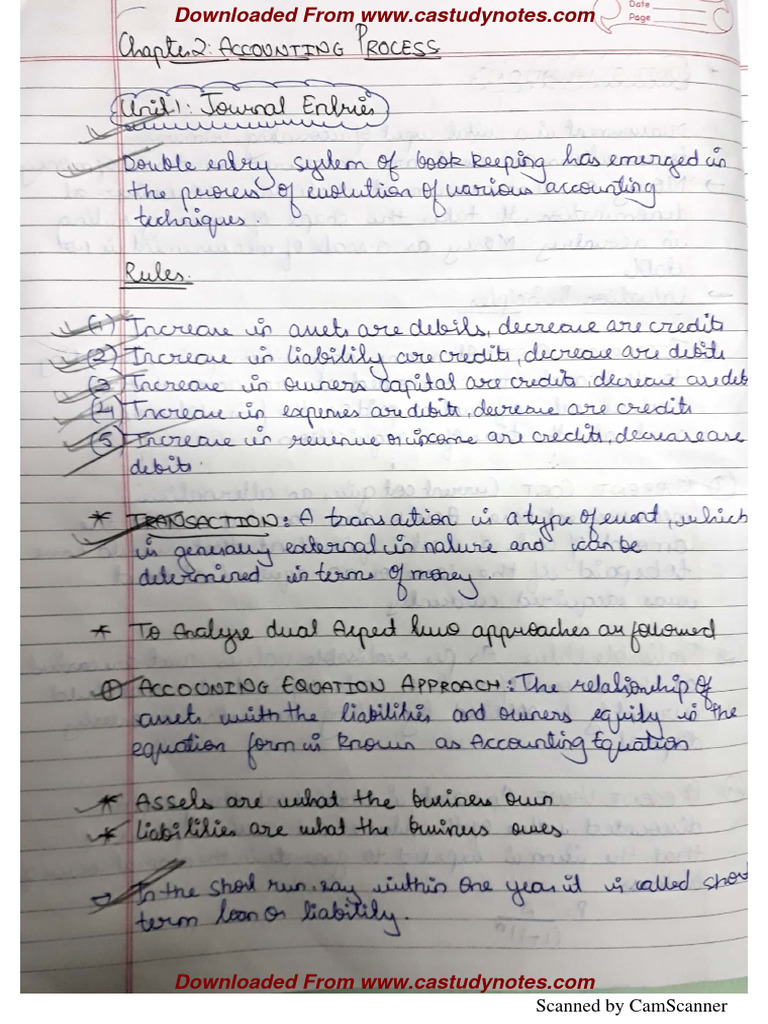 Downloaded From www.castudynotes.com
Date
Page
Chapter 2: ACCOUNTING PROCESS
Unit 1: Journal Entries
Double entry system of book keeping has emerged in
the process of evolution of various accounting
techniques.
Rules.
(1) Increase in assets are debits, decrease are credits
(2) Increase in liability are credits, decrease are debits
(3) Increase in owners capital are credits, decrease are deb
(4) Increase in expenses are debits, decrease are credits
(5) Increase in revenue or income are credits, decrease are
debits.
* TRANSACTION: A transaction is a type of event, which
is generally external in nature and can be
determined in terms of money
* To Analyse dual Aspect two approaches are followed
① ACCOUNING EQUATION APPROACH: The relationship of
assets with the liabilities and owners equity in the
equation form is known as Accounting Equation
* Assets are what the business own
* Liabilities are what the business owes
→ In the short run, say within one year it is called short
term loan or liability.
Downloaded From www.castudynotes.com
Scanned by CamScanner